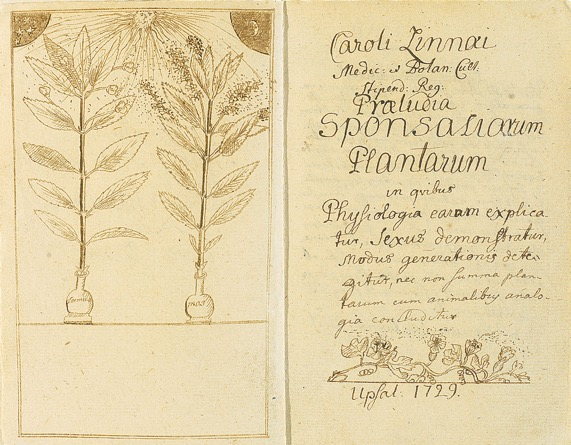 foemina
mas
Caroli Linnæi
Medic: et Botan: Cult.
Stipend: Reg:
Præludia
Sponsaliarum
Plantarum
in qvibus
Physiologia earum explica-
tur, Sexus demonstratur,
Modus generationis dete-
gitur, nec non summa plan-
tarum cum animalibus analo-
gia concluditur
Upsal. 1729.